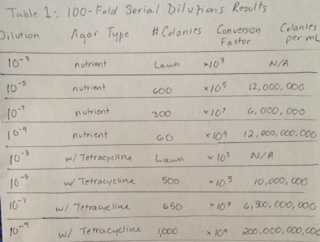 Table 1: 100-Fold Serial Dilutions Results
Dilution Agar Type # Colonies Conversion Factor Colonies per mL
10⁻³ nutrient Lawn ×10³ N/A
10⁻⁵ nutrient 600 ×10⁵ 12,000,000
10⁻⁷ nutrient 300 ×10⁷ 6,000,000
10⁻⁹ nutrient 60 ×10⁹ 12,000,000,000
10⁻³ w/ Tetracycline Lawn ×10³ N/A
10⁻⁵ w/ Tetracycline 500 ×10⁵ 10,000,000
10⁻⁷ w/ Tetracycline 650 ×10⁷ 6,500,000,000
10⁻⁹ w/ Tetracycline 1,000 ×10⁹ 200,000,000,000